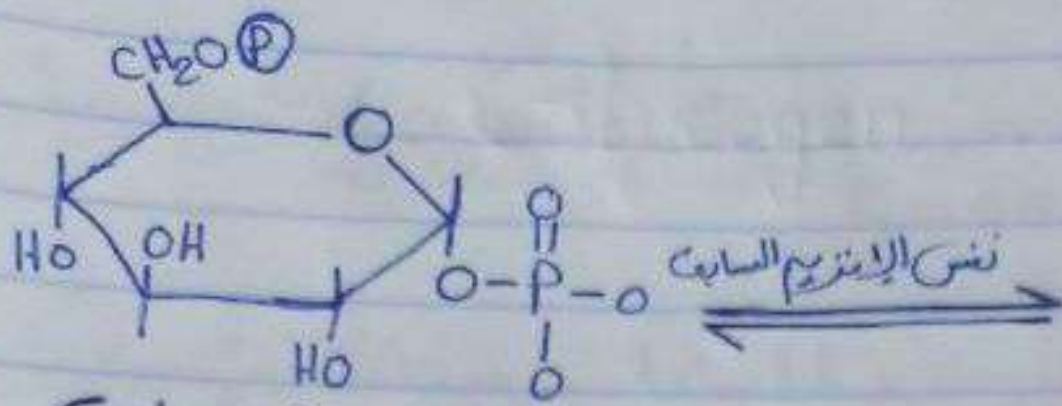 CH₂O Ⓟ
O
HO OH O
O-P-O
HO O
نفس الإنزيم السابق